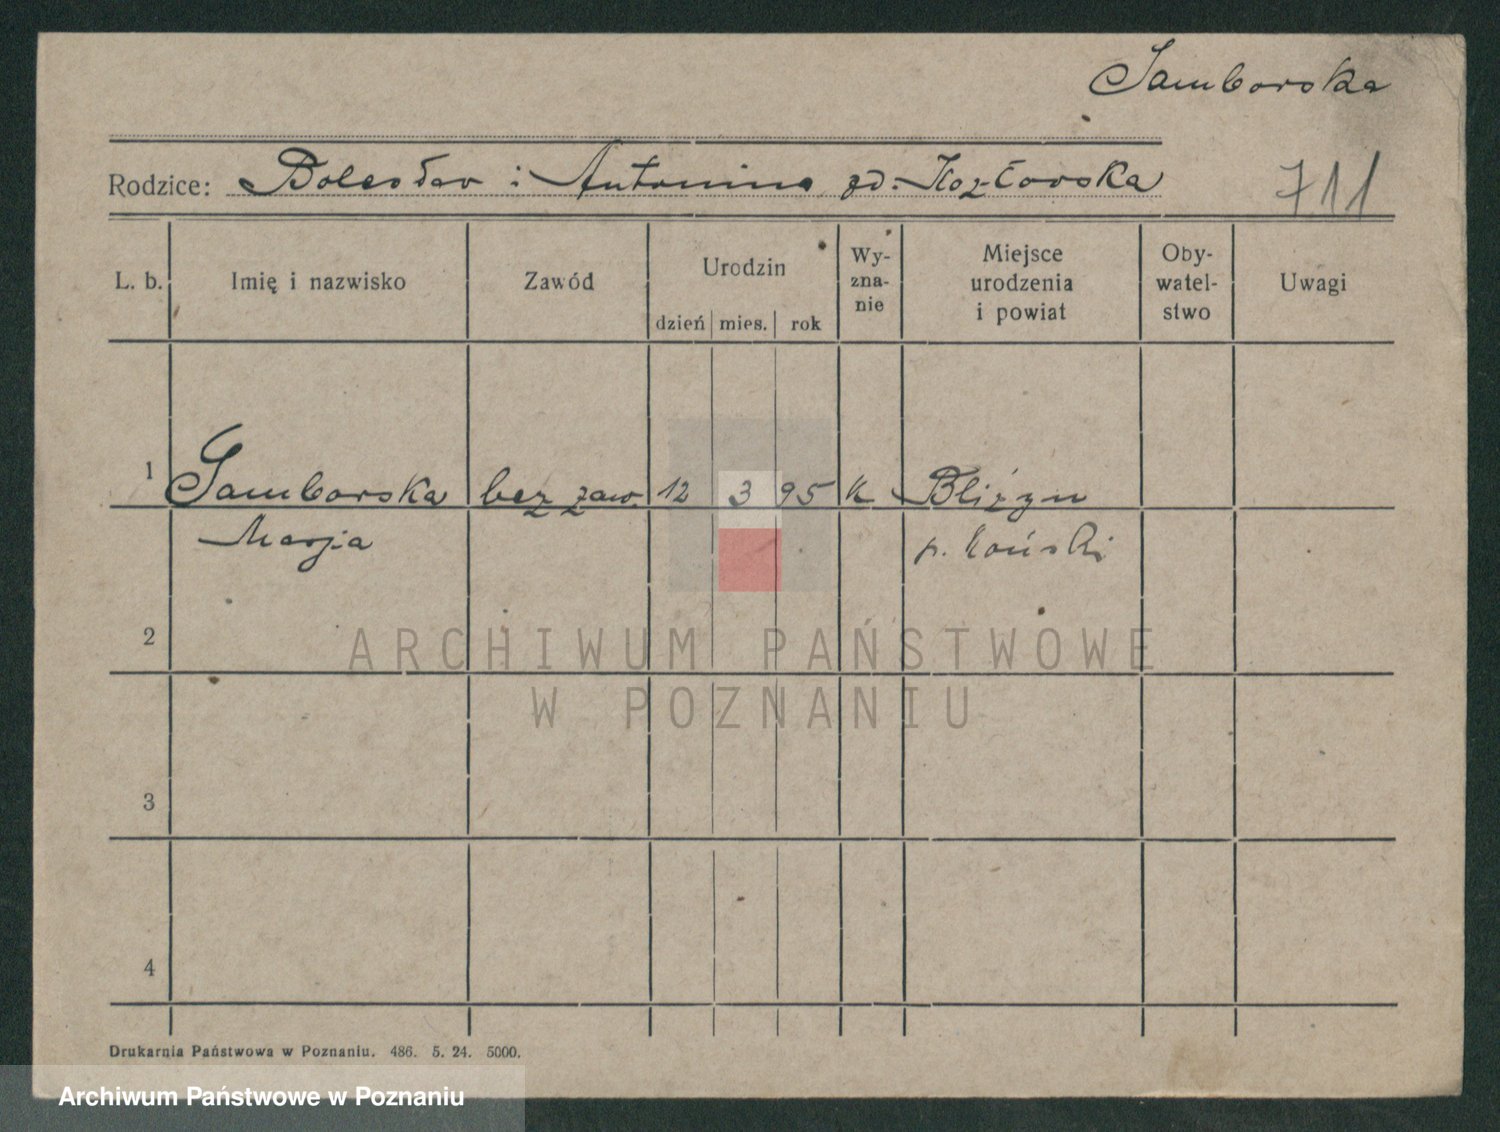 Samborska
Rodzice: Bolesław i Antonina zd. Kozłowska
711
L. b. Imię i nazwisko Zawód Urodzin dzień mies. rok Wy-zna-nie Miejsce urodzenia i powiat Oby-watel-stwo Uwagi
1 Samborska bez zaw. 12 3 95 k Bliżyn
Marja p. Koński
2
ARCHIWUM PAŃSTWOWE
W POZNANIU
3
4
Drukarnia Państwowa w Poznaniu. 486. 5. 24. 5000.
Archiwum Państwowe w Poznaniu